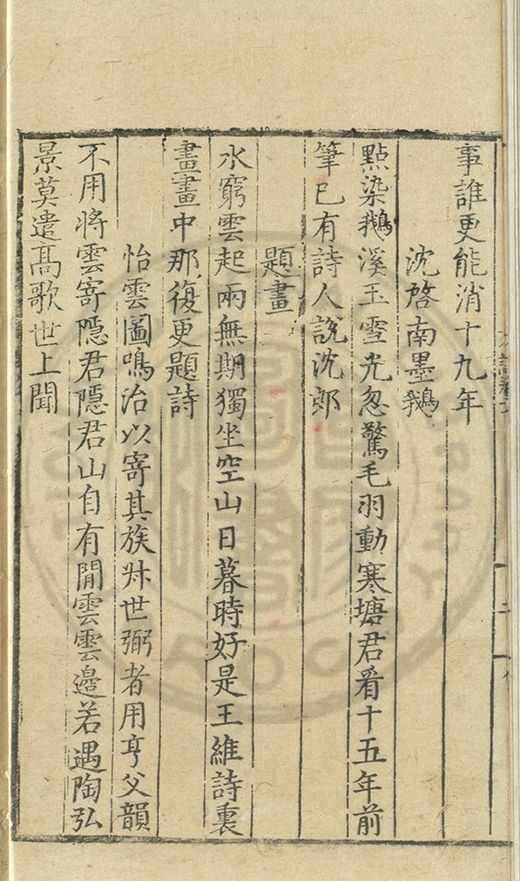 事誰更能消十九年
沈啓南墨鵝
點染鵝溪玉雪光忽驚毛羽動寒塘君看十五年前
筆已有詩人說沈郎
題畫
水窮雲起兩無期獨坐空山日暮時好是王維詩裏
畫畫中那復更題詩
怡雲圖鳴治以寄其族叔世弼者用亨父韻
不用將雲寄隱君隱君山自有閒雲雲邊若遇陶弘
景莫遣高歌世上聞